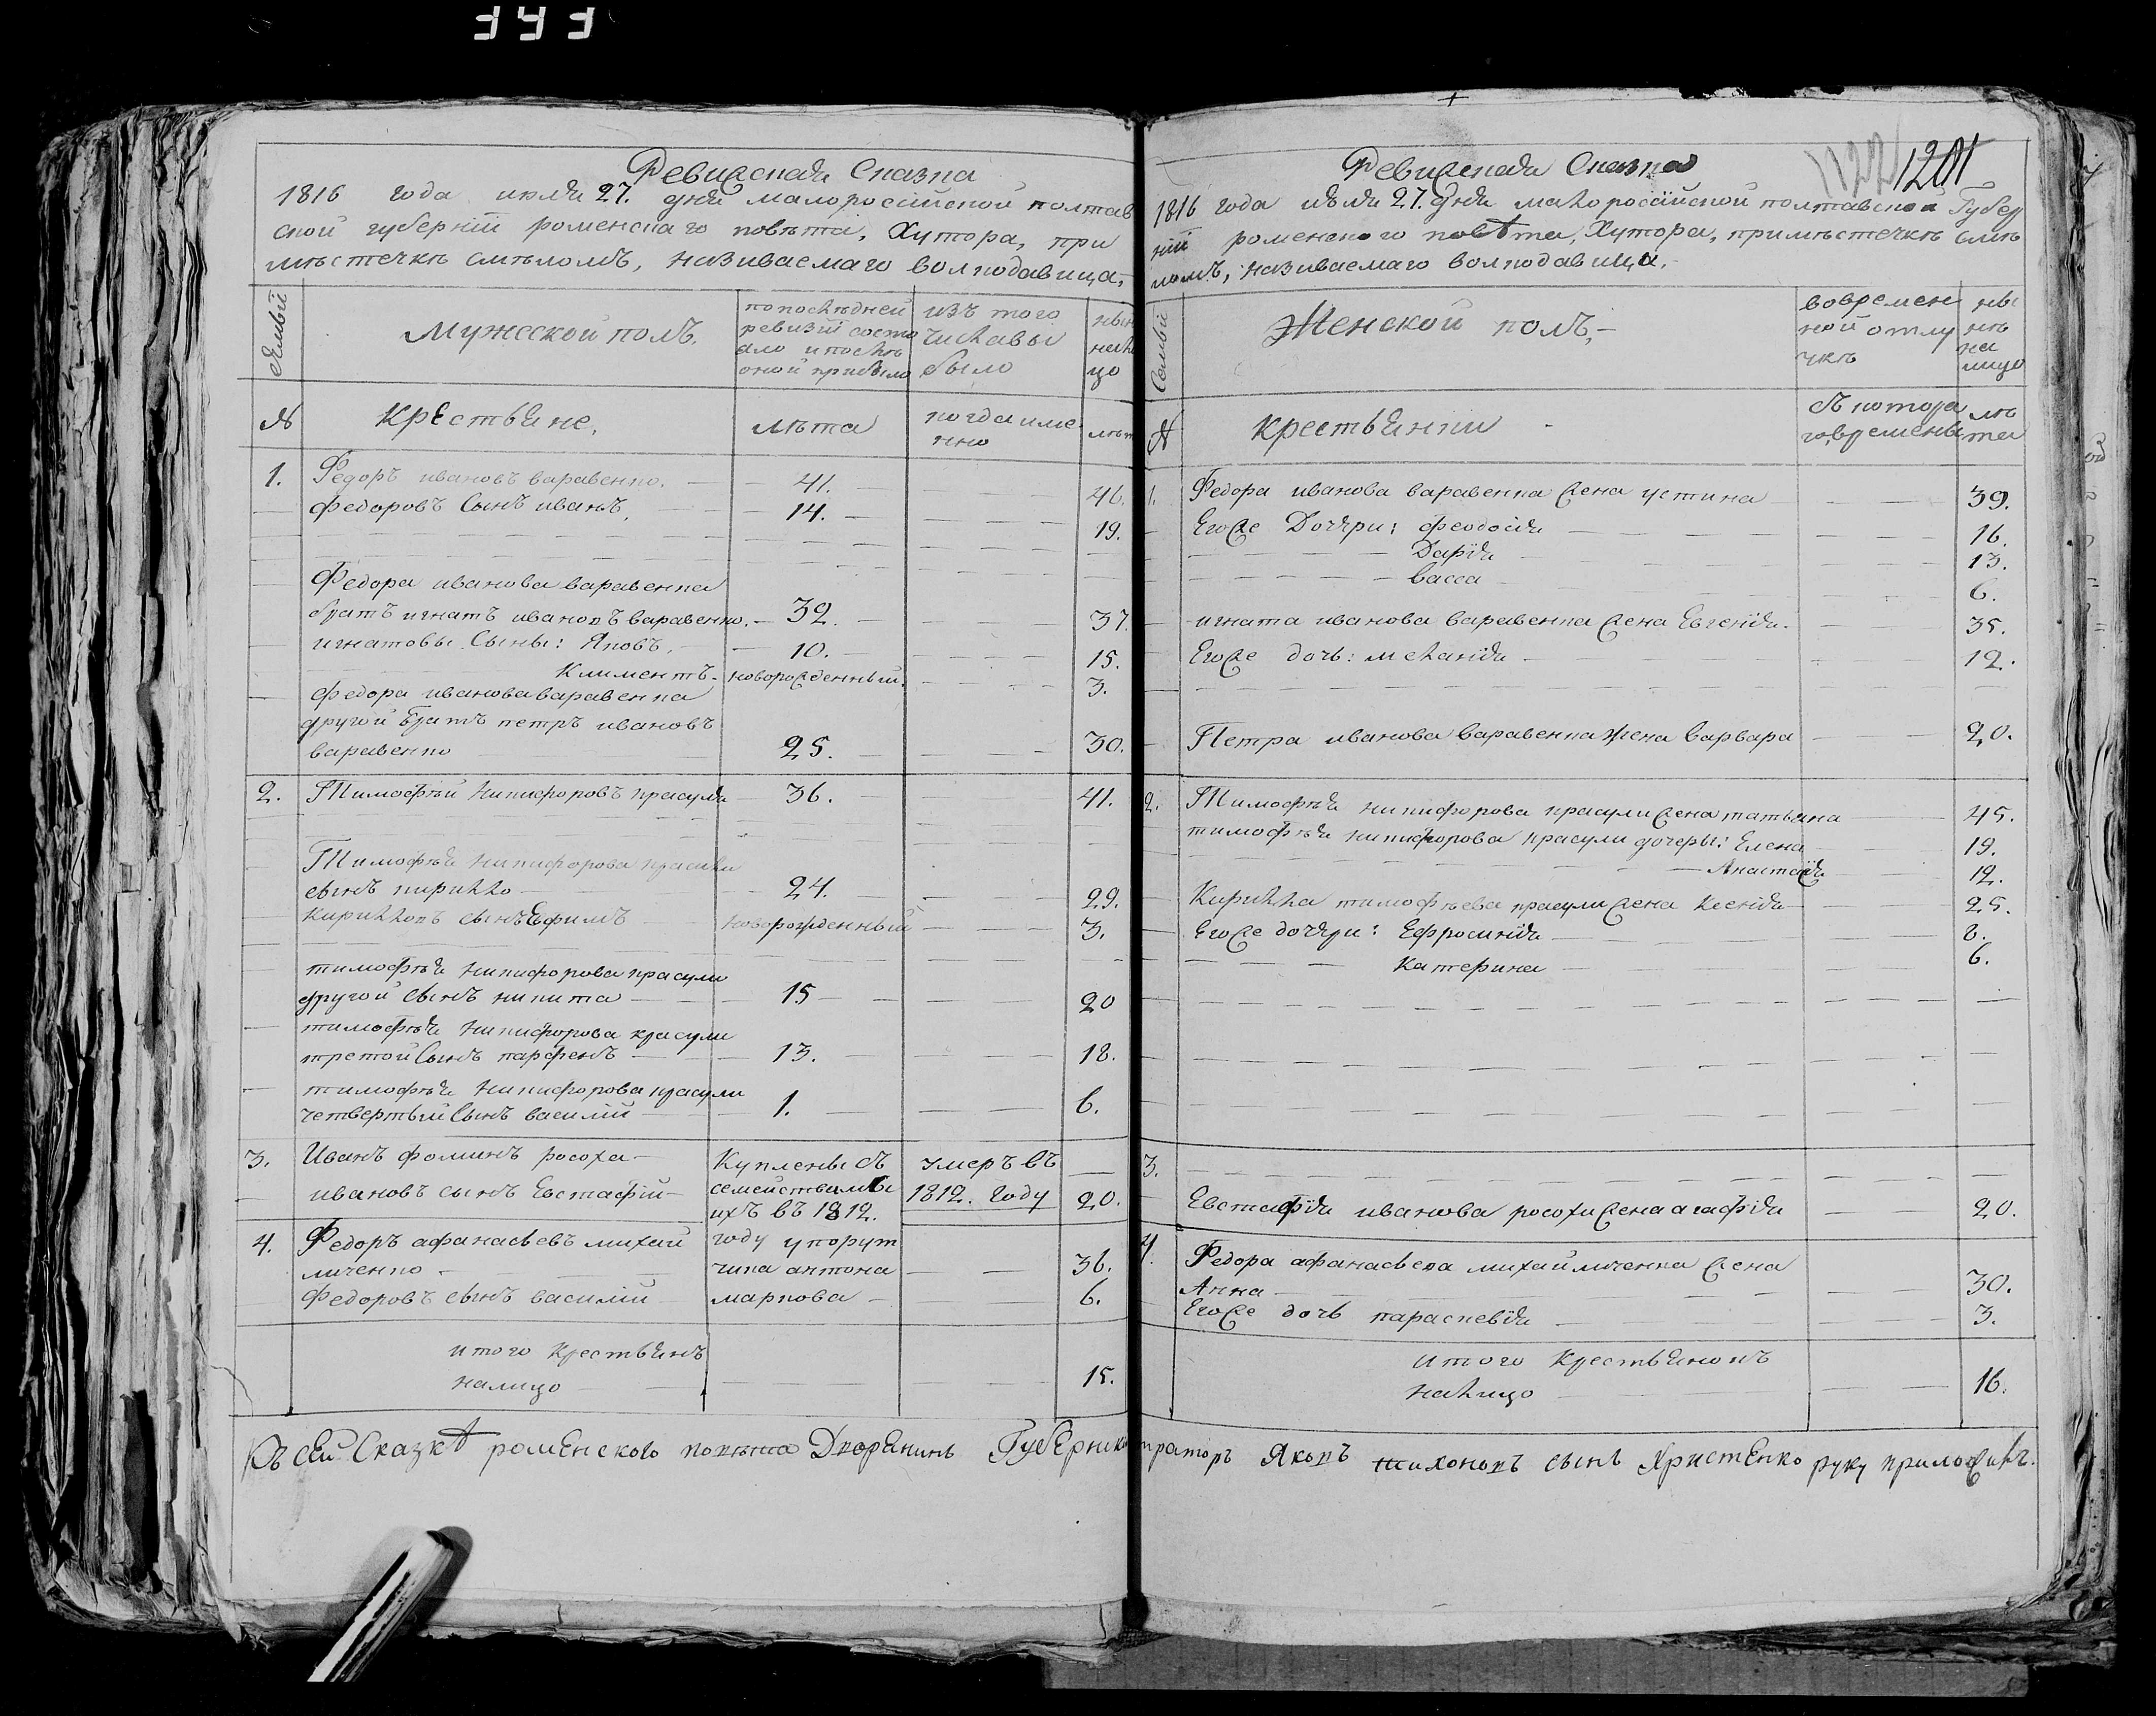 Ревизская Сказка
1816 года июля 27. дня малороссійской полтав
ской губерніи роменскаго повѣта, Хутора, при
мѣстечкѣ смѣломъ, називаемаго волкодавица,
Семьи
Мужеской полъ.
по последней ревизіи состояло и послѣ оной прибыло
изъ того числа выбыло
ныне на лицо
№
крестьяне,
лѣта
когда именно
лѣта
1. Федоръ ивановъ варавенко. 41. 46.
федоровъ Сынъ иванъ, 14. 19.
Федора иванова варавенка
братъ игнатъ ивановъ варавенко. 32. 37.
игнатовы Сыны: Яковъ, 10. 15.
Климентъ. новорожденный. 3.
Федора иванова варавенка
другой братъ петръ ивановъ
варавенко 25. 30.
2. Тимофѣй никифоровъ красуля 36. 41.
Тимофѣя никифорова красули
сынъ кирилло 24. 29.
кирилловъ сынъ Ефимъ новорожденный 3.
тимофѣя никифорова красули
другой сынъ никита 15 20
тимофѣя никифорова красули
третой Сынъ парфенъ 13. 18.
тимофѣя никифорова красули
четвертый Сынъ василій 1. 6.
3. Иванъ фоминъ росоха Куплены съ умеръ въ
ивановъ сынъ Евстафій семействами 1812. году 20.
ихъ въ 1812.
4. Федоръ афанасьевъ михай году у порут
личенко чика антона 36.
Федоровъ сынъ василій маркова 6.
итого крестьянъ
на лицо 15.
Ревизская Сказка
1201
1816 года июля 27. дня малороссійской полтавской Губер
ніи роменского повѣта, Хутора, при мѣстечкѣ смѣ
ломъ, називаемаго волкодавица.
Семьи
Женской полъ,
во временной отлучкѣ
ныне на лицо
№
крестьянки
съ которого времены
лѣта
1. Федора иванова варавенка жена устина 39.
Его же Дочери: феодосія 16.
Дарія 13.
васса 6.
игната иванова варавенка жена Евгенія. 35.
Его же дочь: меланія 12.
Петра иванова варавенка жена варвара 20.
2. Тимофѣя никифорова красули жена татьяна 45.
тимофѣя никифорова красули дочеры: Елена 19.
Анастасія 12.
Кирилла тимофѣева красули жена ксенія 25.
Его же дочери: Ефросинія 8.
катерина 6.
3.
Евстафія иванова росохи жена агафія 20.
4. Федора афанасьева михайличенка жена
Анна 30.
Его же дочь параскевія 3.
итого крестьянокъ
на лицо 16.
Къ сей Сказкѣ роменского повѣта Дворянинъ Губерн Яковъ тихоновъ сынъ Христенко руку приложилъ.